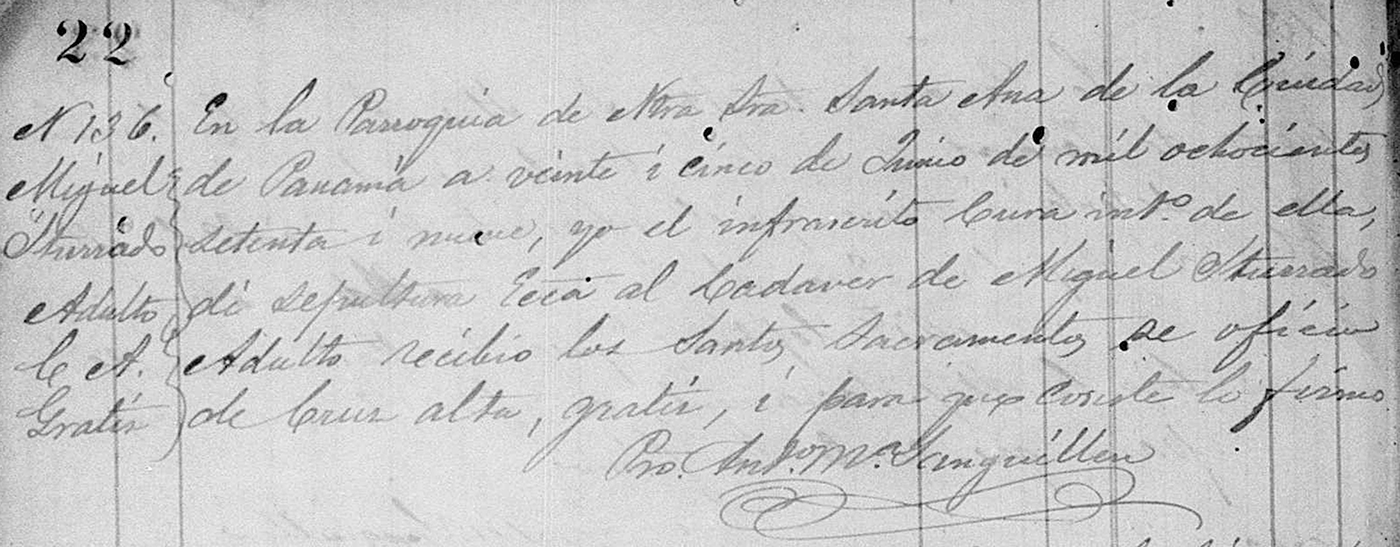 22
N 136.
Miguel
Iturrado
Adulto
C A.
Gratis
En la Parroquia de Ntra Sra. Santa Ana de la Ciudad
de Panamá a veinte i cinco de Junio de mil ochocientos
setenta i nueve, yo el infrascrito Cura intº. de ella,
di sepultura Ecca al Cadaver de Miguel Iturrado
Adulto recibio los Santos Sacramentos se oficio
de Cruz alta, gratis, i para que coste lo firmo
Pro. Antº. Mª Sanguillen